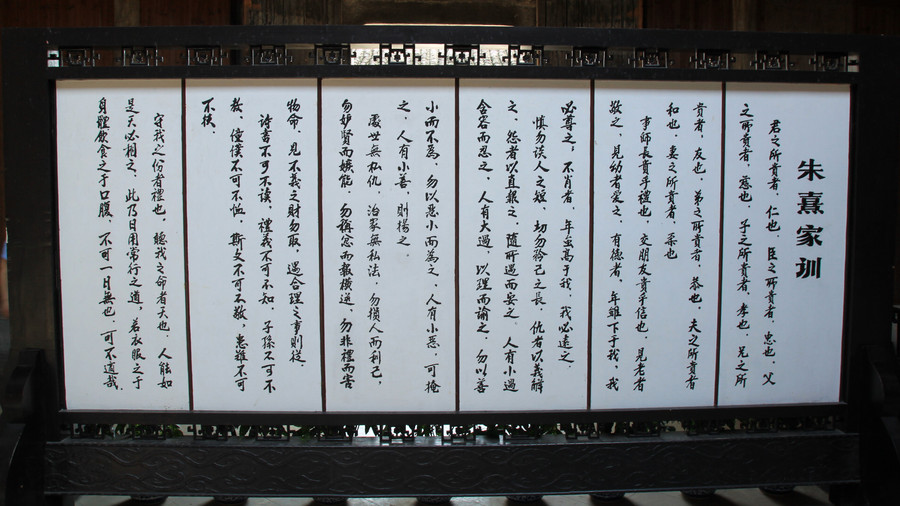 朱熹家训
君之所贵者，仁也，臣之所贵者，忠也，父
之所贵者，慈也，子之所贵者，孝也，兄之所
贵者，友也，弟之所贵者，恭也，夫之所贵者
和也，妻之所贵者，柔也
事师长贵乎礼也，交朋友贵乎信也，见老者
敬之，见幼者爱之，有德者，年虽下于我，我
必尊之，不肖者，年虽高于我，我必远之。
慎勿谈人之短，切勿矜己之长，仇者以义解
之，怨者以直报之，随所遇而安之，人有小过
含容而忍之，人有大过，以理而谕之，勿以善
小而不为，勿以恶小而为之，人有小恶，可掩
之，人有小善，则扬之。
处世无私仇，治家无私法，勿损人而利己，
勿妒贤而嫉能，勿称忿而报横逆，勿非礼而害
物命，见不义之财勿取，遇合理之事则从。
诗书不可不读，礼义不可不知，子孙不可不
教，僮仆不可不恤，斯文不可不敬，患难不可
不扶。
守我之份者礼也，听我之命者天也，人能如
是天必相之，此乃日用常行之道，若衣服之于
身体饮食之于口腹，不可一日无也，可不慎哉。